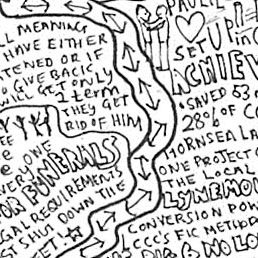 LL MEANINGS
HAVE EITHER
TENED OR IF
GIVE BACK
GET ONLY
1 term
THEY GET
RID OF HIM
EE
e
EVERYONE
FOR FUNERALS
GAL REQUIREMENTS
ST SHUT DOWN THE
EET.
SET UP!
in C
ACHIEV
• SAVED 53
28% OF CO
HORNSEA LA
ONE PROJECT
THE LOCAL
LYNEMO
CONVERSION POW
CCC'S FIC METHOD
& NO LO